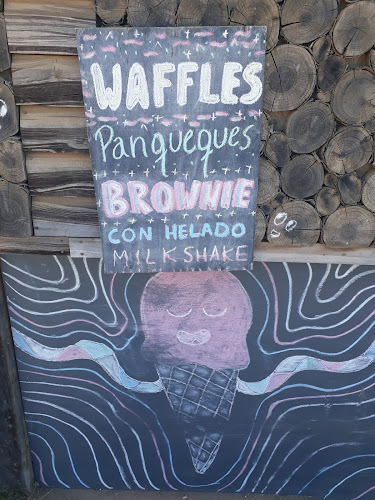 WAFFLES
Panqueques
BROWNIE
CON HELADO
MILKSHAKE